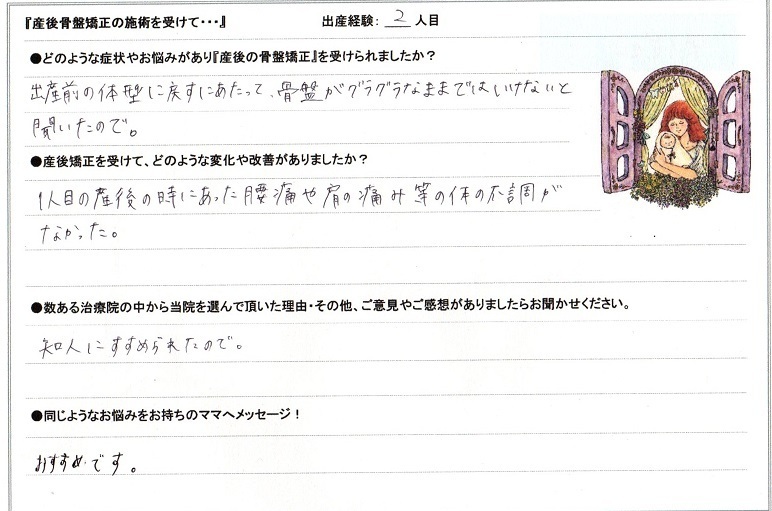 『産後骨盤矯正の施術を受けて・・・』 出産経験: 2 人目
●どのような症状やお悩みがあり『産後の骨盤矯正』を受けられましたか?
出産前の体型に戻すにあたって、骨盤がグラグラなままではいけないと
聞いたので。
●産後矯正を受けて、どのような変化や改善がありましたか?
1人目の産後の時にあった腰痛や肩の痛み等の体の不調が
なかった。
●数ある治療院の中から当院を選んで頂いた理由・その他、ご意見やご感想がありましたらお聞かせください。
知人にすすめられたので。
●同じようなお悩みをお持ちのママへメッセージ!
おすすめです。